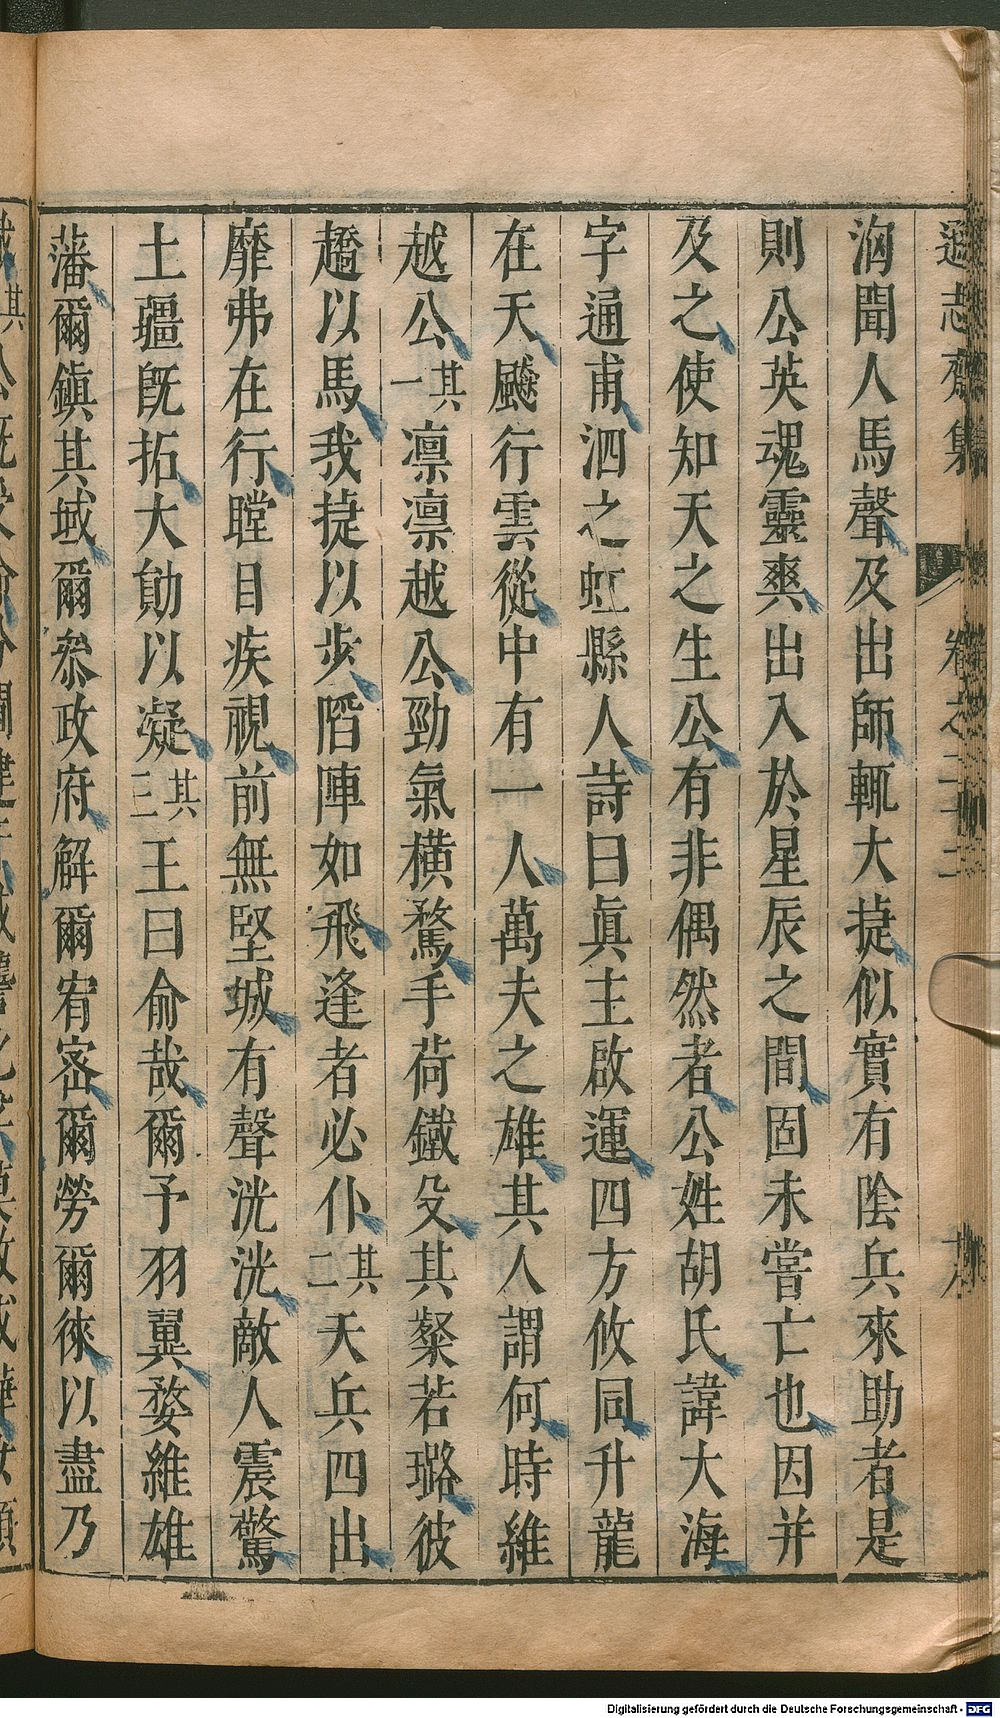 遜志齋集 卷之二十二
洶聞人馬聲及出師輒大捷似實有陰兵來助者是
則公英魂靈爽出入於星辰之間固未嘗亡也因并
及之使知天之生公有非偶然者公姓胡氏諱大海
字通甫泗之虹縣人詩曰眞主啟運四方攸同升龍
在天飈行雲從中有一人萬夫之雄其人謂何時維
越公其一凛凛越公勁氣橫騖手荷鐵殳其粲若璐彼
趫以馬我捷以步蹈陣如飛逢者必仆其二天兵四出
靡弗在行瞠目疾視前無堅城有聲洸洸敵人震驚
土疆旣拓大勛以凝其三王曰俞哉爾予羽翼婺維雄
藩爾鎮其域爾叅政府解爾宥密爾勞爾徠以盡乃
Digitalisierung gefördert durch die Deutsche Forschungsgemeinschaft - DFG